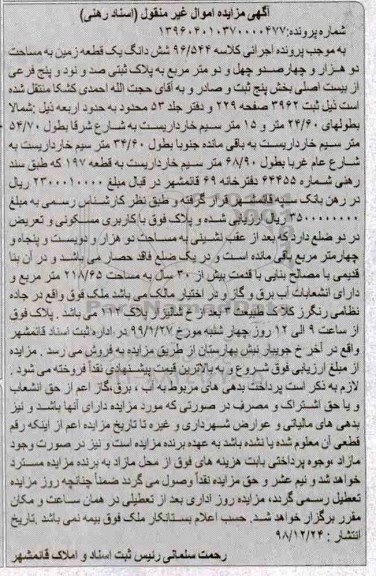 آگهی مزایده اموال غیر منقول (اسناد رهنی)
شماره پرونده: ۱۳۹۶۰۴۰۱۰۳۷۰۰۰۰۴۷۷
به موجب پرونده اجرائی کلاسه ۹۶/۵۴۴ شش دانگ یک قطعه زمین به مساحت
دو هزار و چهارصدو چهل و دو متر مربع به پلاک ثبتی صد و نود و پنج فرعی
از بیست اصلی بخش پنج ثبت و صادر و به آقای حجت الله احمدی کشکا منتقل شده
است ذیل ثبت ۳۹۶۲ صفحه ۲۲۹ و دفتر جلد ۵۳ محدود به حدود اربعه ذیل :شمالا
بطولهای ۲۴/۶۰ متر و ۱۵ متر سیم خارداریست به شارع شرقا بطول ۵۴/۷۰
متر سیم خارداریست به باقی مانده جنوبا بطول ۳۴/۶۰ متر سیم خارداریست به
شارع عام غربا بطول ۶۸/۹۰ متر سیم خارداریست به قطعه ۱۹۷ که طبق سند
رهنی شماره ۶۴۴۵۵ دفترخانه ۶۹ قائمشهر در قبال مبلغ ۲۳۰۰۰۱۰۰۰۰ ریال
در رهن بانک سپه قائمشهر قرار گرفته و طبق نظر کارشناس رسمی به مبلغ
۳۵۰۰۰۰۰۰۰۰ ریال ارزیابی شده و پلاک فوق با کاربری مسکونی و تعریض
در دو ضلع دارد که بعد از عقب نشینی به مساحت دو هزار و دویست و پنجاه و
چهارمتر مربع باقی مانده است و در یک ضلع فاقد حصار می باشد و در آن بنا
قدیمی با مصالح بنایی با قدمت بیش از ۳۰ سال به مساحت ۲۱۸/۶۵ متر مربع و
دارای انشعابات آب برق و گاز و در اختیار مالک می باشد ملک فوق واقع در جاده
نظامی رنگرز کلاک طبیعت ۳ بعد از خ شالیزار پلاک ۱۱۲ می باشد . پلاک فوق
از ساعت ۹ الی ۱۲ روز چهار شنبه مورخ ۹۹/۱/۲۷ در اداره ثبت اسناد قائمشهر
واقع در آخر خ جویبار نبش بهارستان از طریق مزایده به فروش می رسد . مزایده
از مبلغ ارزیابی فوق شروع و به بالاترین قیمت پیشنهادی نقداً فروخته می شود .
لازم به ذکر است پرداخت بدهی های مربوط به آب ، برق،گاز اعم از حق انشعاب
و یا حق اشتراک و مصرف در صورتی که مورد مزایده دارای آنها باشد و نیز
بدهی های مالیاتی و عوارض شهرداری و غیره تا تاریخ مزایده اعم از اینکه رقم
قطعی آن معلوم شده یا نشده باشد به عهده برنده مزایده است و نیز در صورت وجود
مازاد ،وجوه پرداختی بابت هزینه های فوق از محل مازاد به برنده مزایده مسترد
خواهد شد و نیم عشر و حق مزایده نقداً وصول می گردد ضمناً چنانچه روز مزایده
تعطیل رسمی گردد، مزایده روز اداری بعد از تعطیلی در همان ساعت و مکان
مقرر برگزار خواهد شد. حسب اعلام بستانکار ملک فوق بیمه نمی باشد .تاریخ
انتشار : ۹۸/۱۲/۲۴
رحمت سلمانی رئیس ثبت اسناد و املاک قائمشهر